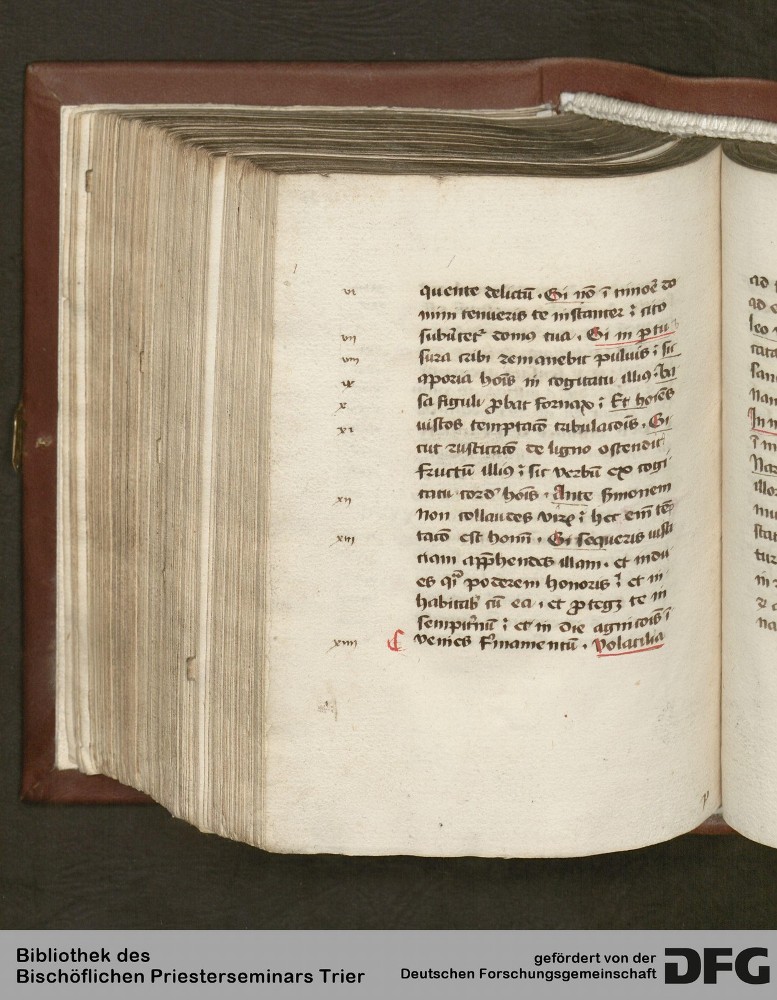 vi quente delictū . Si nō ī timoē do
mini tenueris te instanter : cito
vii subūtet domꝰ tua . Si in ꝑtu
viii sura cribi remanebit puluis : sic
ix aporia hoīs in cogitatu illiꝰ . Va
x sa figuli ꝓbat fornax : Et hoīes
xi iustos temptacō tribulacōis . Si
cut rusticacō de ligno ostendit
fructū illiꝰ : sic verbū ex cogi
xii tatu cord hoīs . Ante smonem
non collaudes virū : hec eīm tē
xiii tacō est homī . Si sequeris iusti
ciam apphendes illam . et indu
es qī poderem honoris : et in
habitab cū ea . et ꝓtegꝫ te in
sempitnū : et in die agnicōis ī
xiiii venies firmamentū . Volatilia
ad
ad e
leo
cata
san
nan
In m
ī m
Nar
illor
mu
stat
tur
in
na
Bibliothek des
Bischöflichen Priesterseminars Trier
gefördert von der
Deutschen Forschungsgemeinschaft
DFG